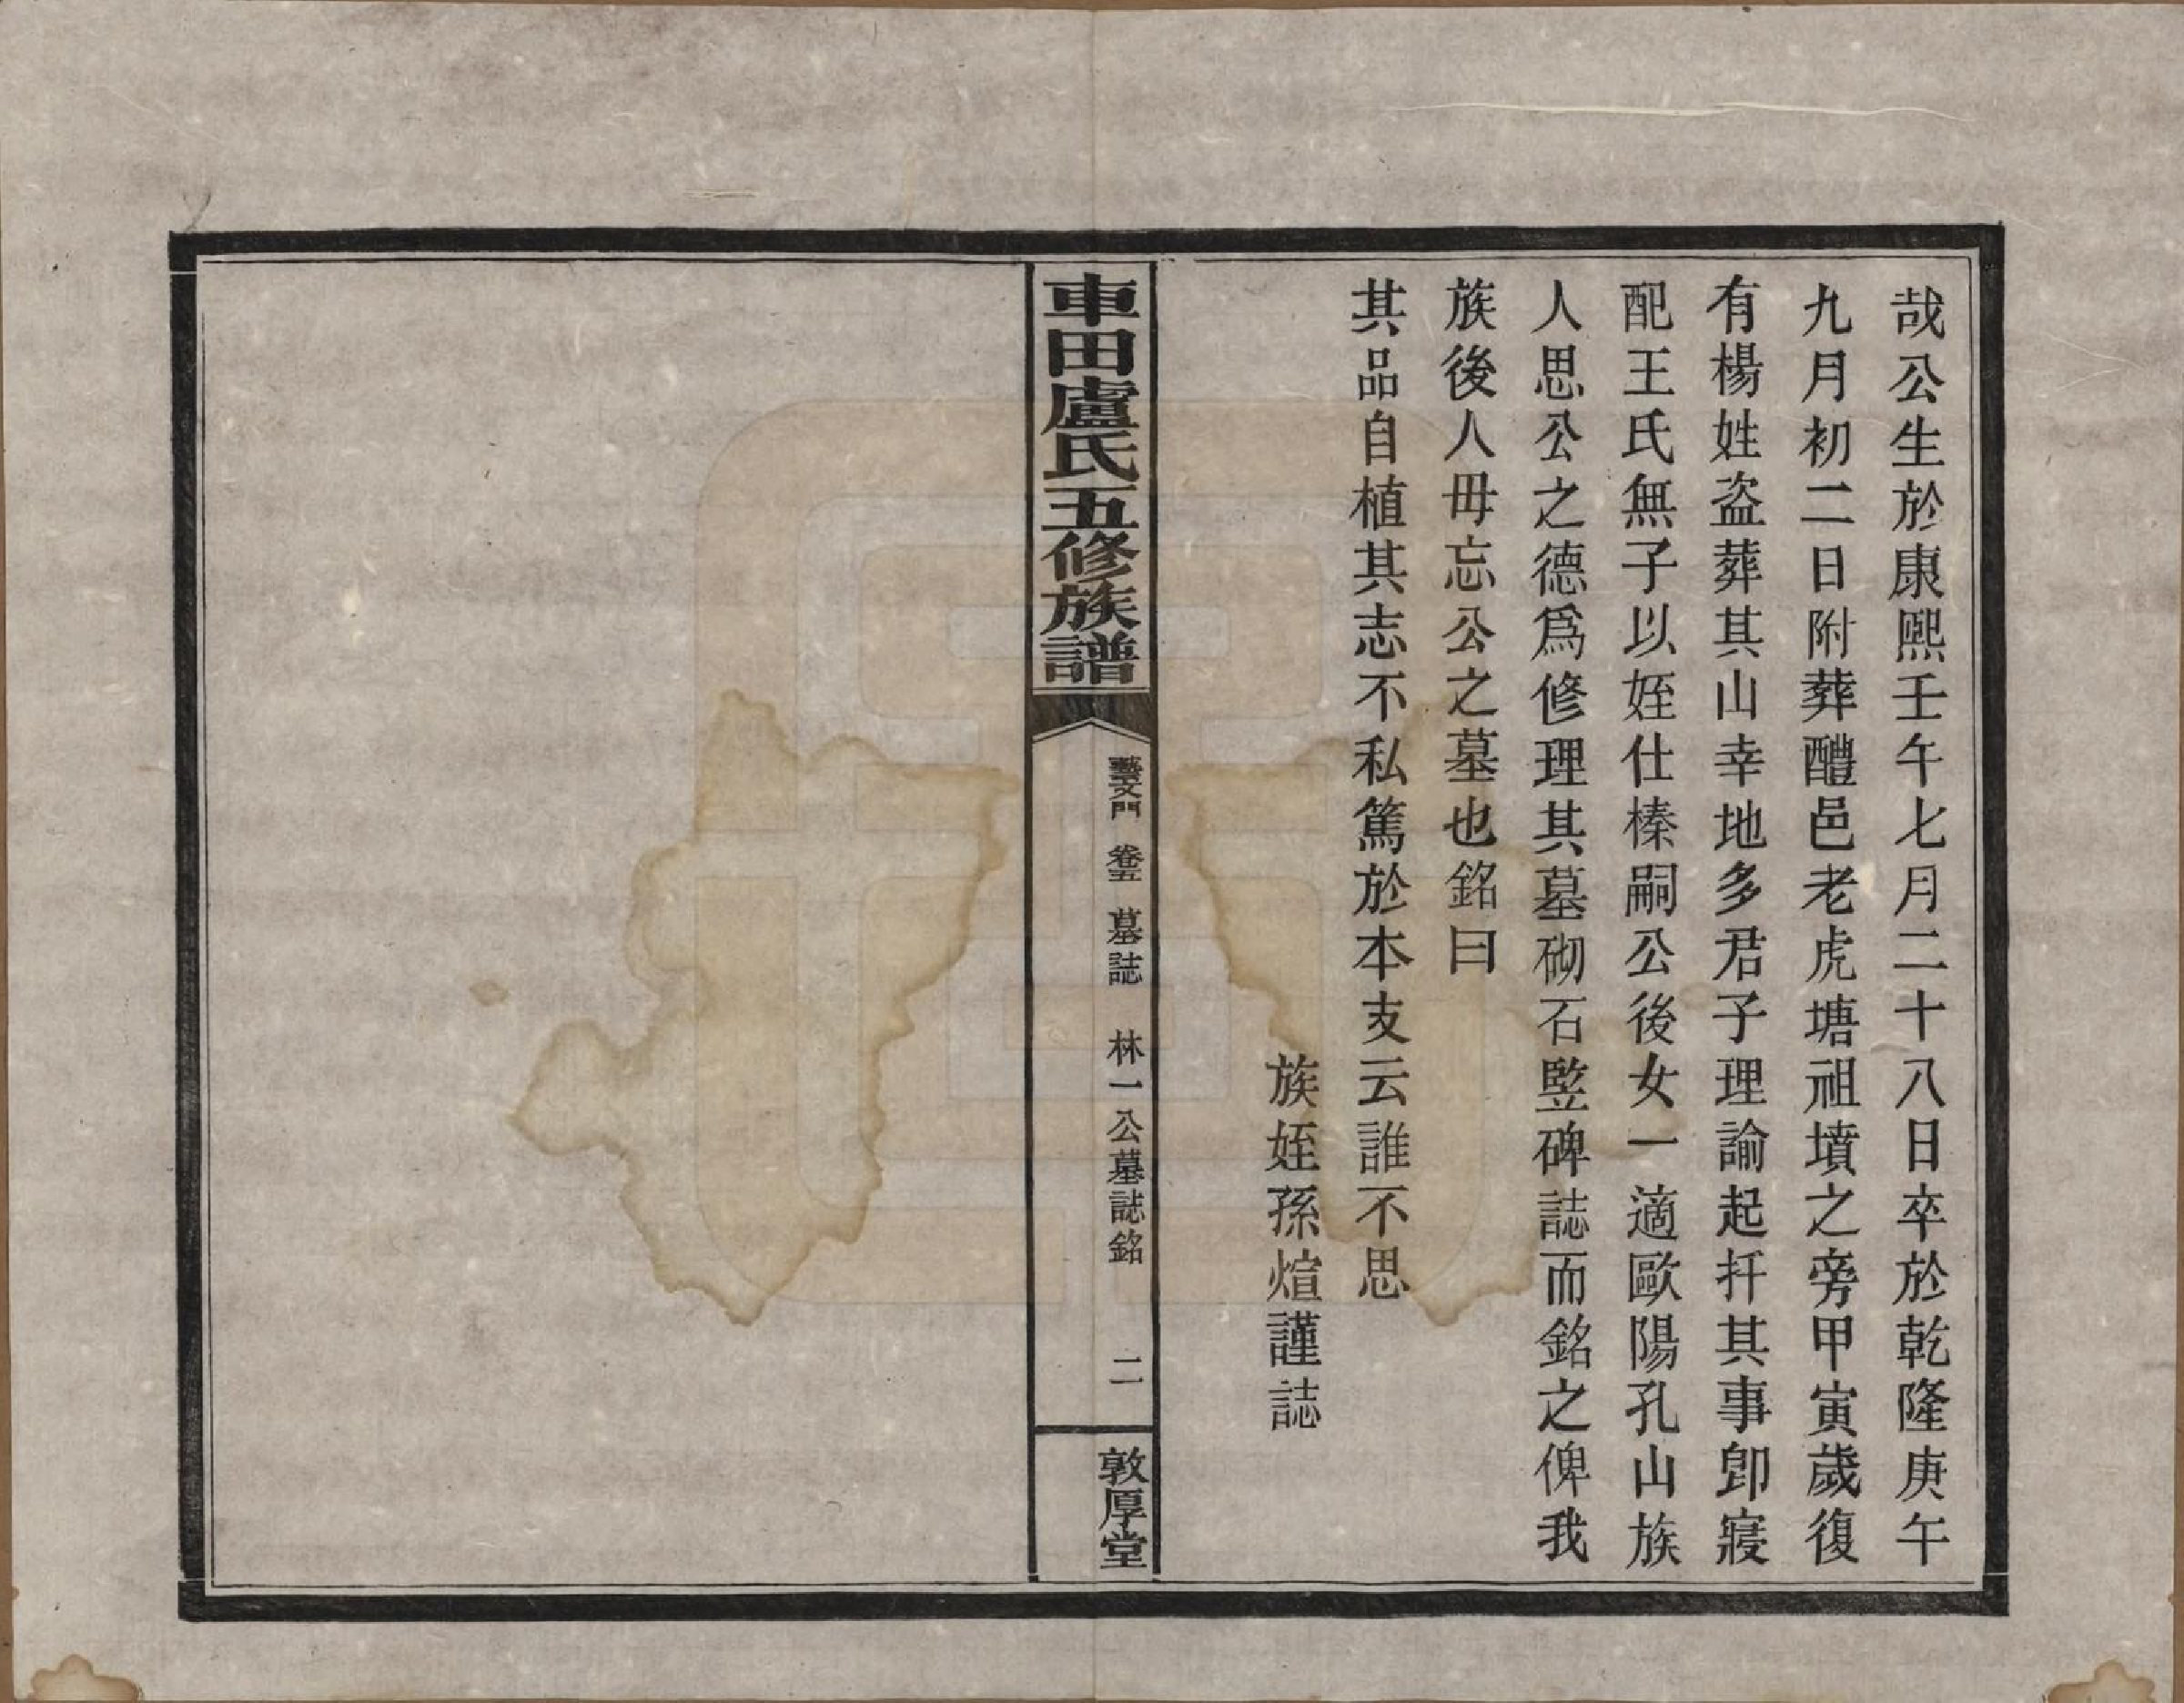 哉公生於康熙壬午七月二十八日卒於乾隆庚午
九月初二日附葬醴邑老虎塘祖墳之旁甲寅歲復
有楊姓盜葬其山幸地多君子理諭起扦其事卽寢
配王氏無子以姪仕榛嗣公後女一適歐陽孔山族
人思公之德爲修理其墓砌石竪碑誌而銘之俾我
族後人毋忘公之墓也銘曰
其品自植其志不私篤於本支云誰不思
族姪孫煊謹誌
車田盧氏五修族譜
藝文門 卷五 墓誌 林一公墓誌銘 二
敦厚堂